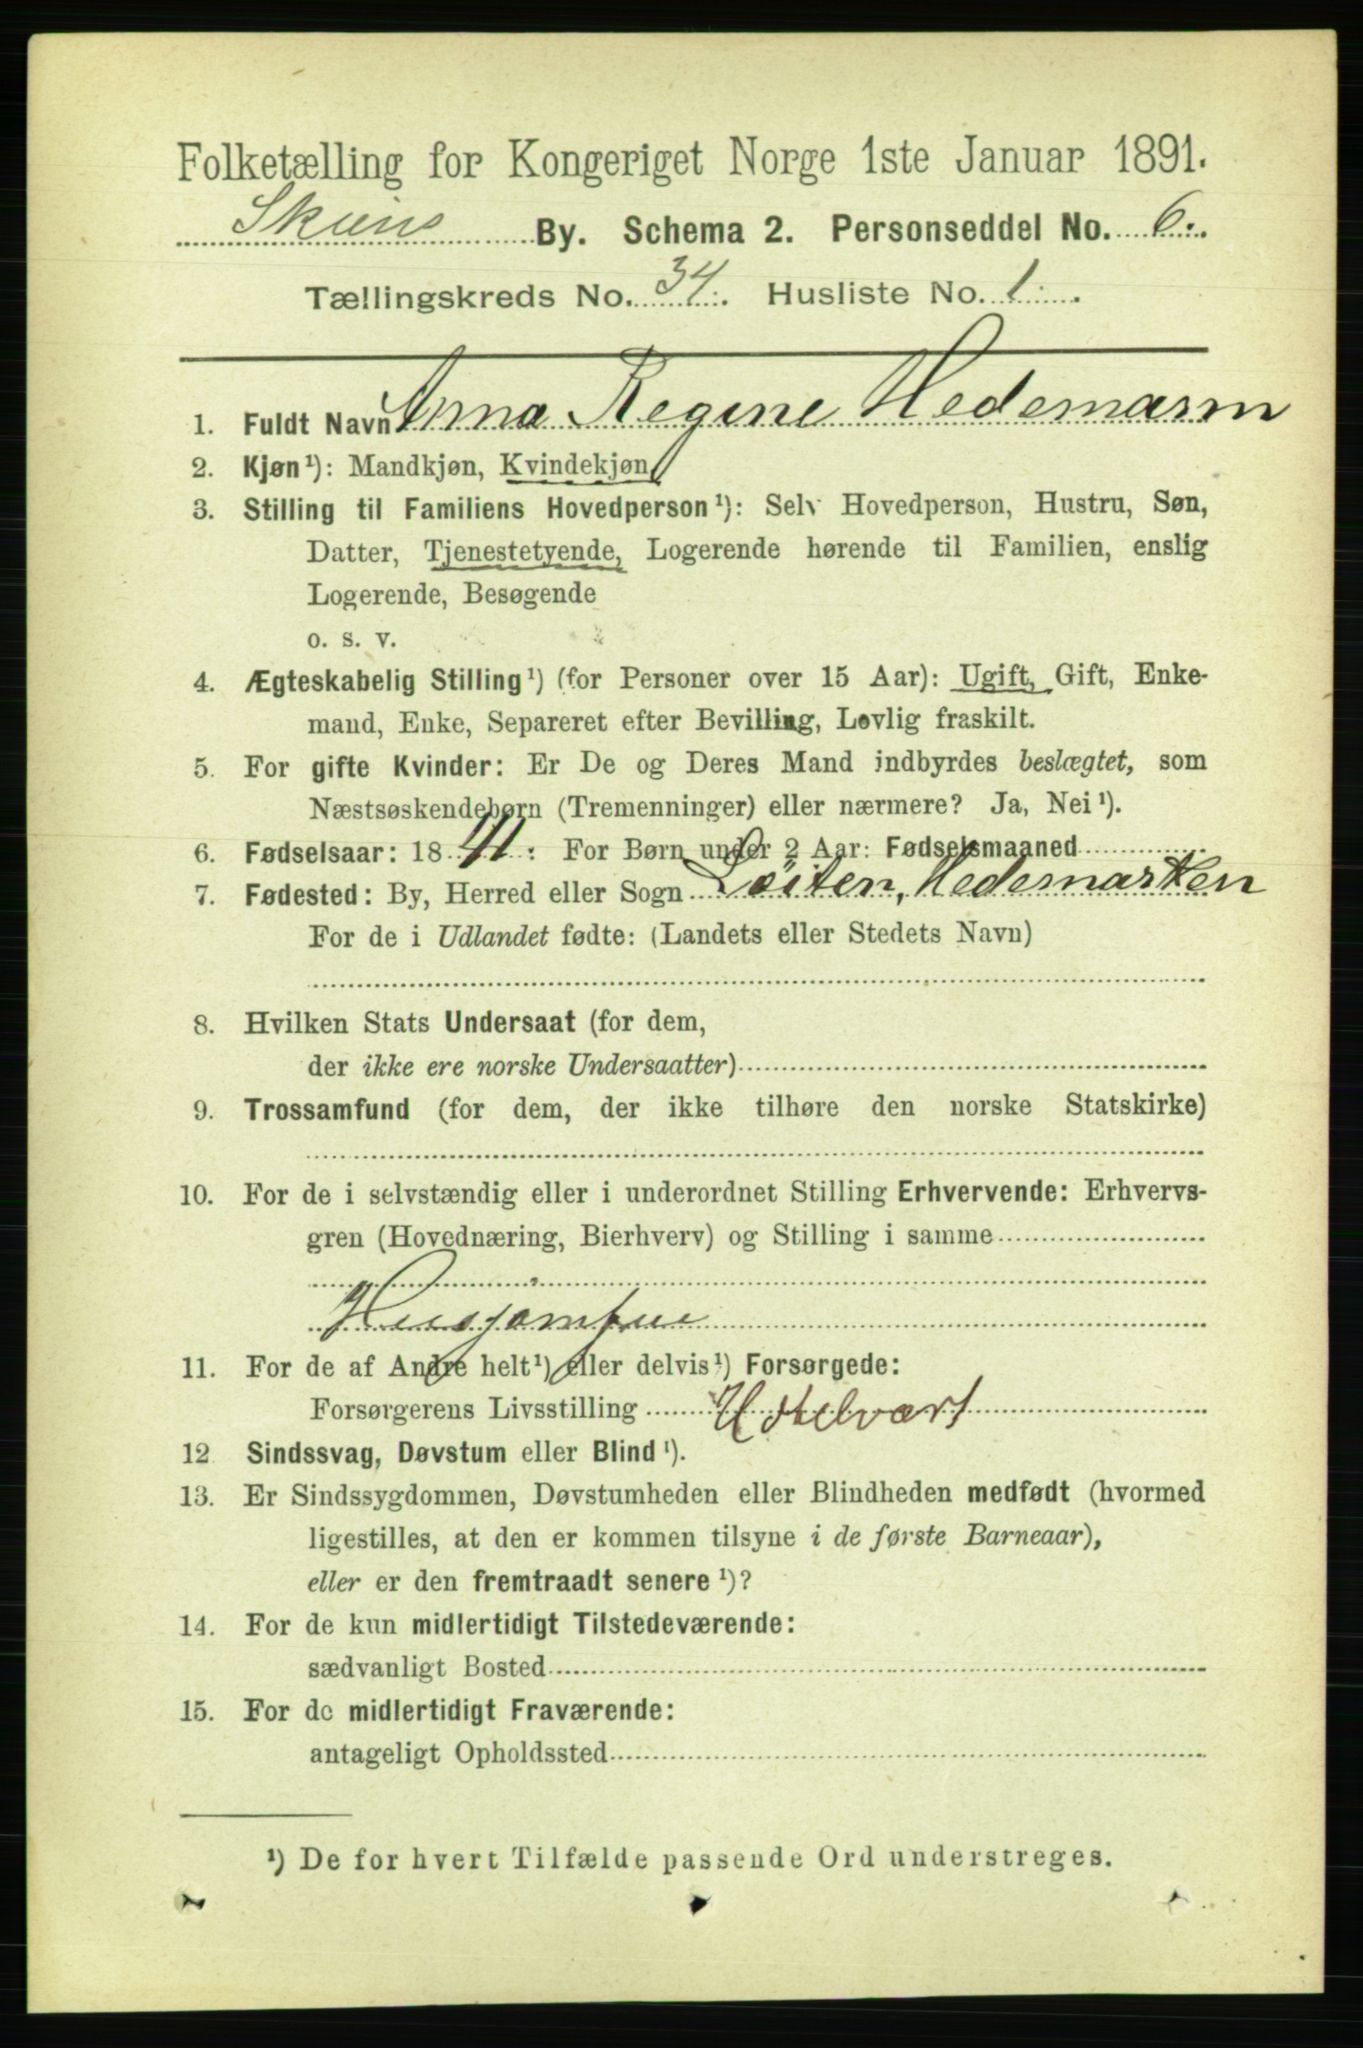 Folketælling for Kongeriget Norge 1ste Januar 1891.
Skiens By. Schema 2. Personseddel No. 6.
Tællingskreds No. 34. Husliste No. 1.
1. Fuldt Navn Anna Regine Hedemann
2. Kjøn¹): Mandkjøn, Kvindekjøn
3. Stilling til Familiens Hovedperson¹): Selv Hovedperson, Hustru, Søn,
Datter, Tjenestetyende, Logerende hørende til Familien, enslig
Logerende, Besøgende
o. s. v.
4. Ægteskabelig Stilling¹) (for Personer over 15 Aar): Ugift, Gift, Enke-
mand, Enke, Separeret efter Bevilling, Lovlig fraskilt.
5. For gifte Kvinder: Er De og Deres Mand indbyrdes beslægtet, som
Næstsøskendebørn (Tremenninger) eller nærmere? Ja, Nei¹).
6. Fødselsaar: 1841. For Børn under 2 Aar: Fødselsmaaned
7. Fødested: By, Herred eller Sogn Löiten, Hedemarken
For de i Udlandet fødte: (Landets eller Stedets Navn)
8. Hvilken Stats Undersaat (for dem,
der ikke ere norske Undersaatter)
9. Trossamfund (for dem, der ikke tilhøre den norske Statskirke)
10. For de i selvstændig eller i underordnet Stilling Erhvervende: Erhvervs-
gren (Hovednæring, Bierhverv) og Stilling i samme
Husjomfrue
11. For de af Andre helt¹) eller delvis¹) Forsørgede:
Forsørgerens Livsstilling Hotelvært
12 Sindssvag, Døvstum eller Blind¹).
13. Er Sindssygdommen, Døvstumheden eller Blindheden medfødt (hvormed
ligestilles, at den er kommen tilsyne i de første Barneaar),
eller er den fremtraadt senere¹)?
14. For de kun midlertidigt Tilstedeværende:
sædvanligt Bosted
15. For de midlertidigt Fraværende:
antageligt Opholdssted
¹) De for hvert Tilfælde passende Ord understreges.